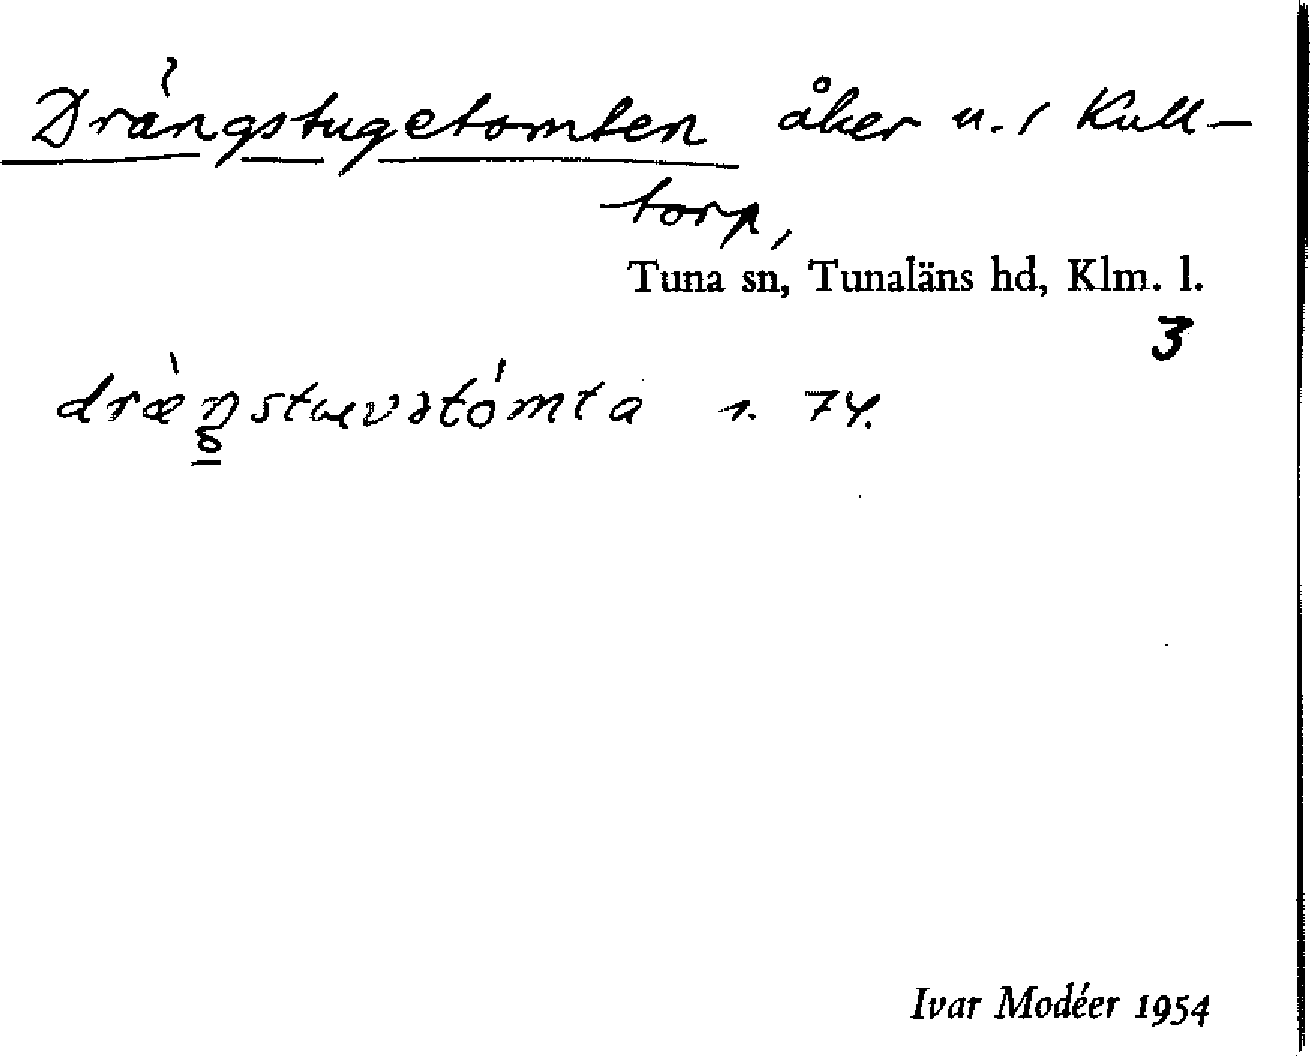 Drängstugetomten åker u. / Kull-
torp,
Tuna sn, Tunaläns hd, Klm. l.
3
s. 74.
Ivar Modéer 1954